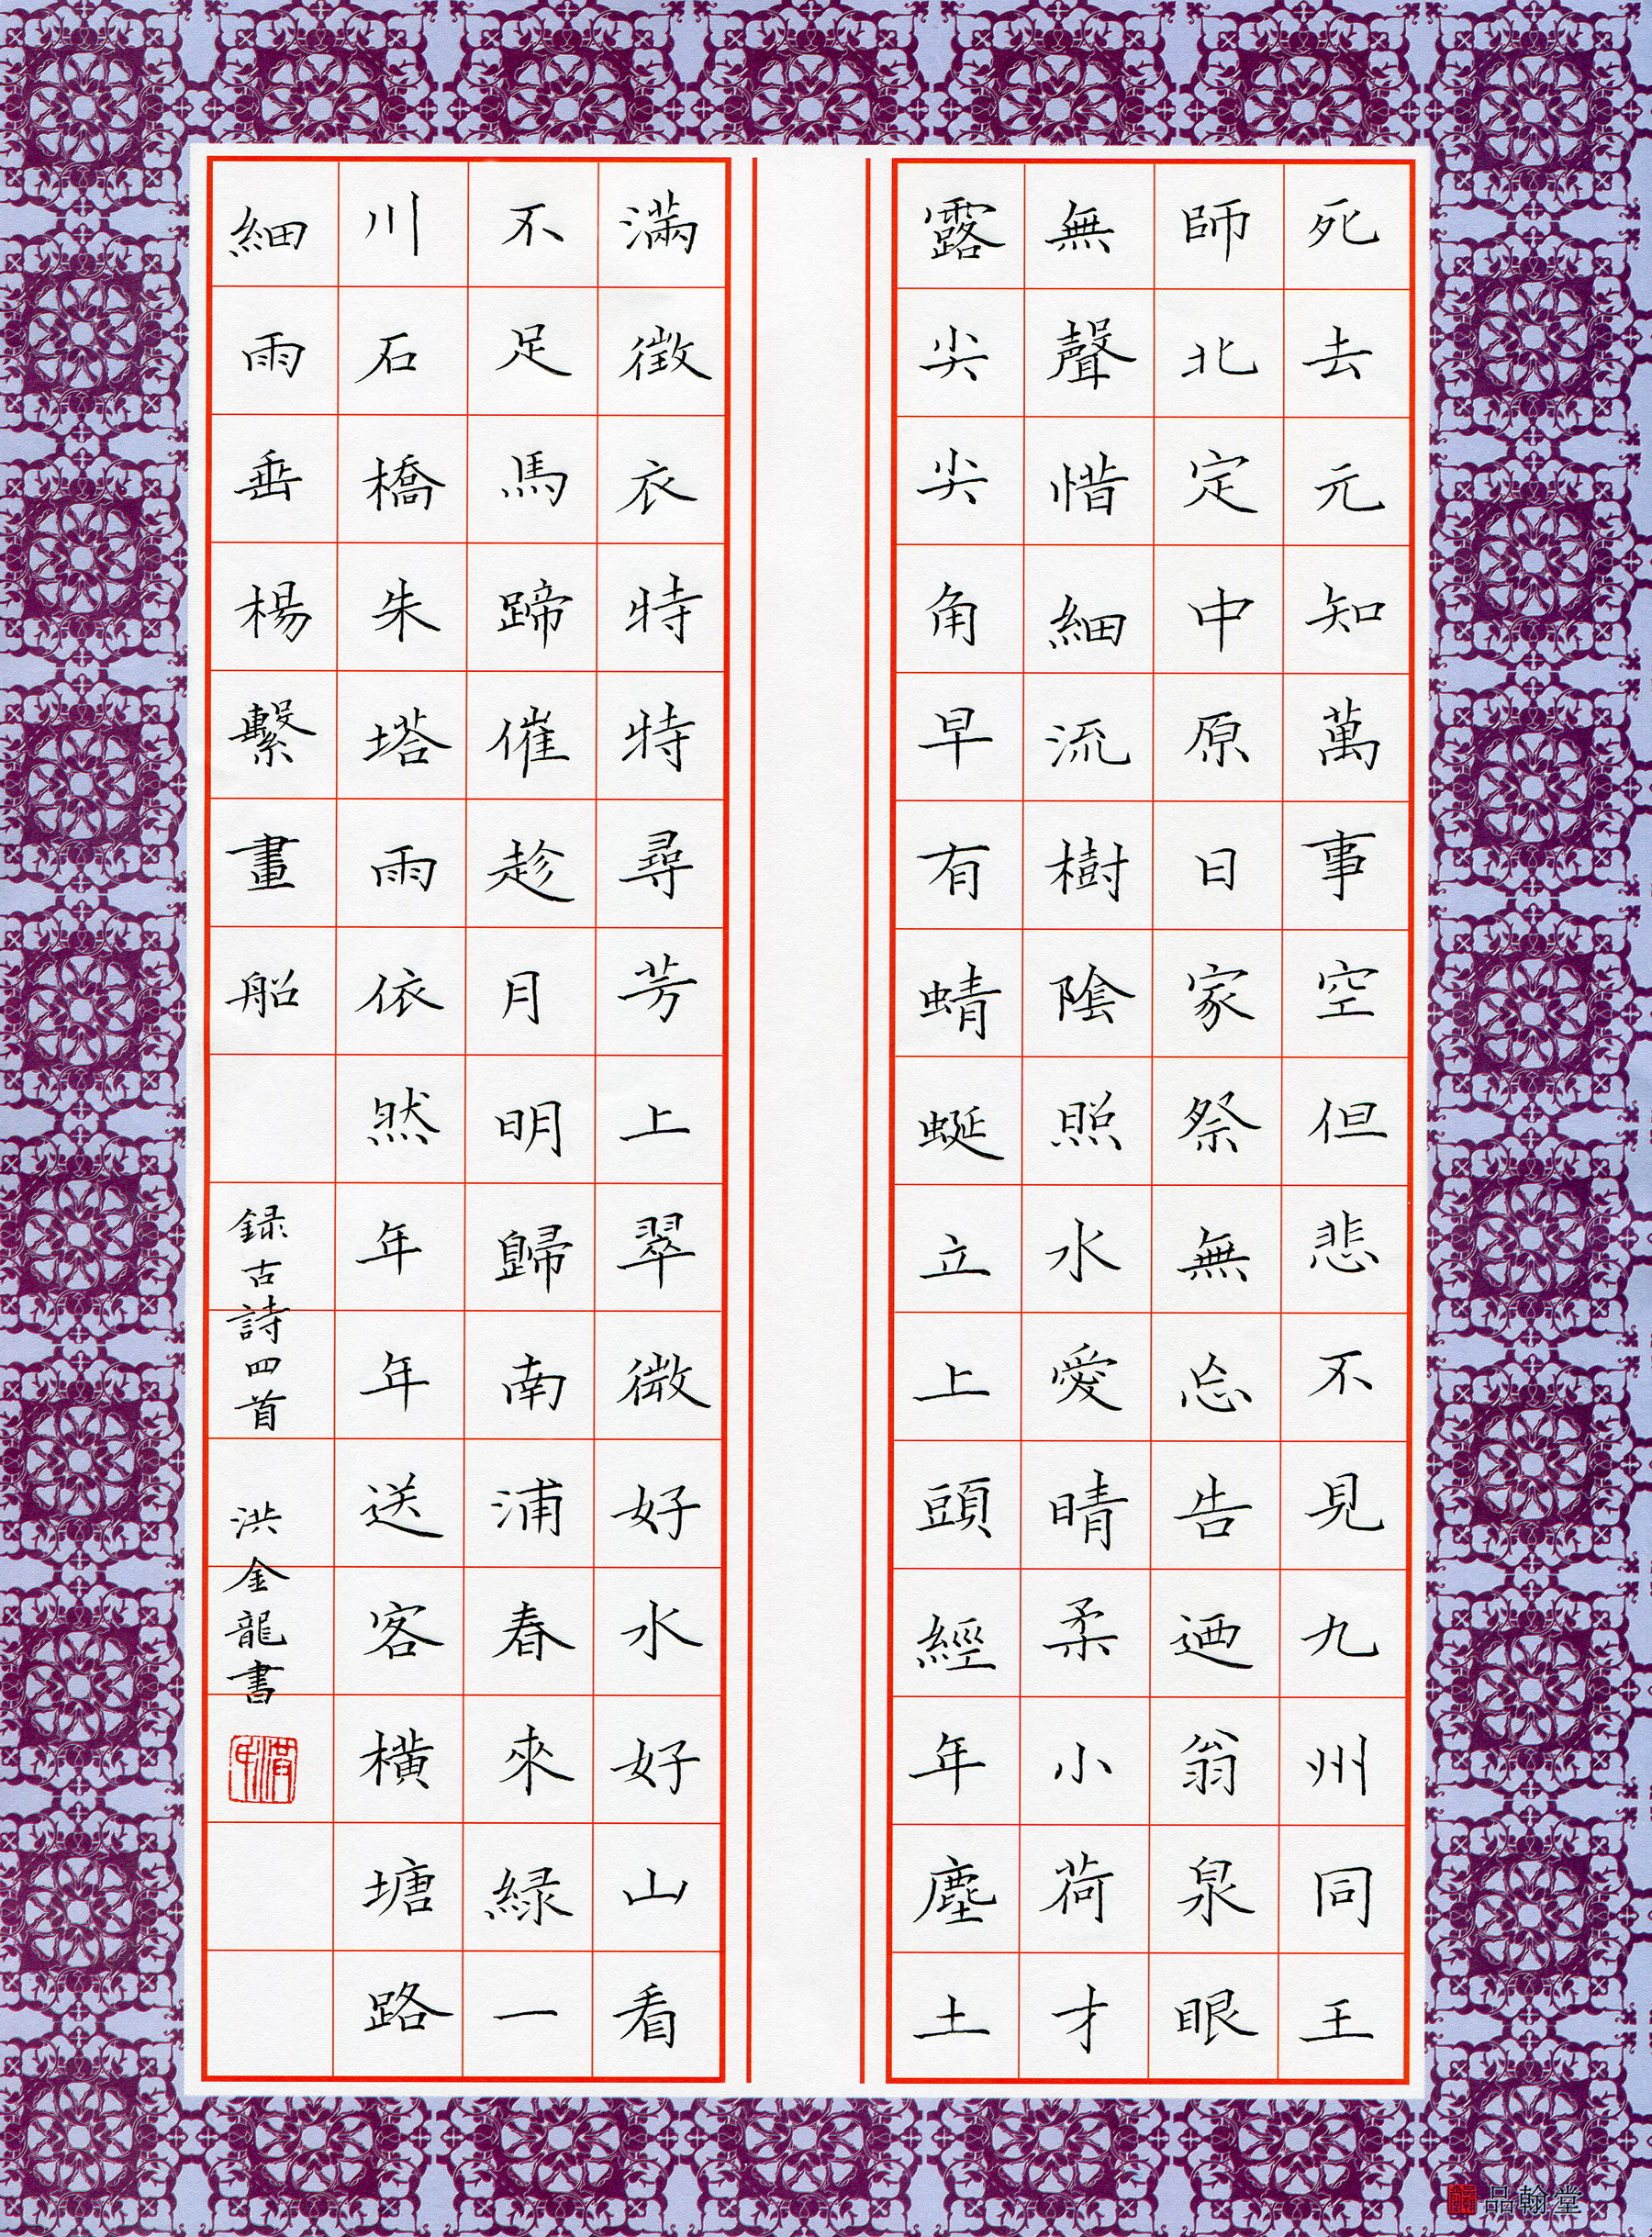 死去元知萬事空但悲不見九州同王
師北定中原日家祭無忘告迺翁泉眼
無聲惜細流樹陰照水愛晴柔小荷才
露尖尖角早有蜻蜓立上頭經年塵土
滿徵衣特特尋芳上翠微好水好山看
不足馬蹄催趁月明歸南浦春來綠一
川石橋朱塔雨依然年年送客橫塘路
細雨垂楊繫畫船
録古詩四首 洪金龍書
品翰堂